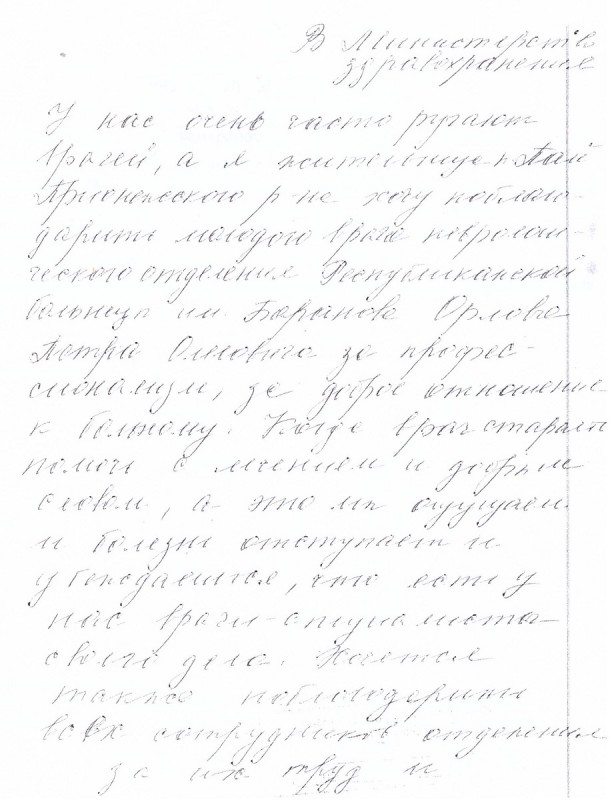 В Министерство
здравохранения
У нас очень часто ругают
врачей, а я жительница п. Пай
Прионежского р-на хочу поблаго-
дарить молодого врача невролог-
ческого отделения Республиканской
больницы им. Баранова Орлова
Петра Олеговича за профес-
сионализм, за доброе отношение
к больному. Когда врач старается
помочь с лечением и добрым
словом, а это мы ощущаем
и болезнь отступает и
убеждаешься, что есть у
нас врачи-специалисты
своего дела. Хочется
также поблагодарить
всех сотрудников отделения
за их труд и